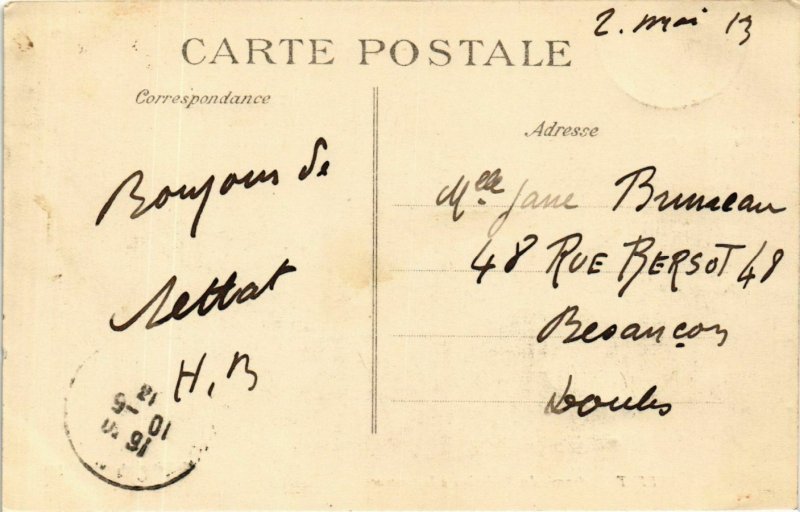 2. mai 13
CARTE POSTALE
Correspondance
Adresse
Bonjour de
Settat
H. B
Mlle Jane Bruneau
48 RUE BERSOT 48
Besançon
Doubs
10 -5